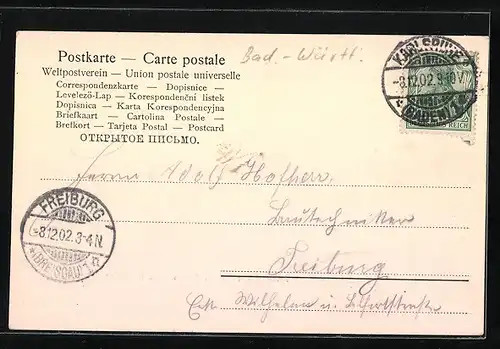 Postkarte — Carte postale
Weltpostverein — Union postale universelle
Correspondenzkarte — Dopisnice —
Levelező-Lap — Korespondenční listek
Dopisnica — Karta Korespondencyjna
Briefkaart — Cartolina Postale —
Brefkort — Tarjeta Postal — Postcard
ОТКРЫТОЕ ПИСЬМО.
Bad.-Württ.
KARLSRUHE
-8.12.02.9-10V
(BADEN)
REICH
Herrn Adolf Hofherr
Bautechniker
Freiburg
Eck Wilhelm u.
FREIBURG
-8.12.02.3-4N.
*(BREISGAU)1 n